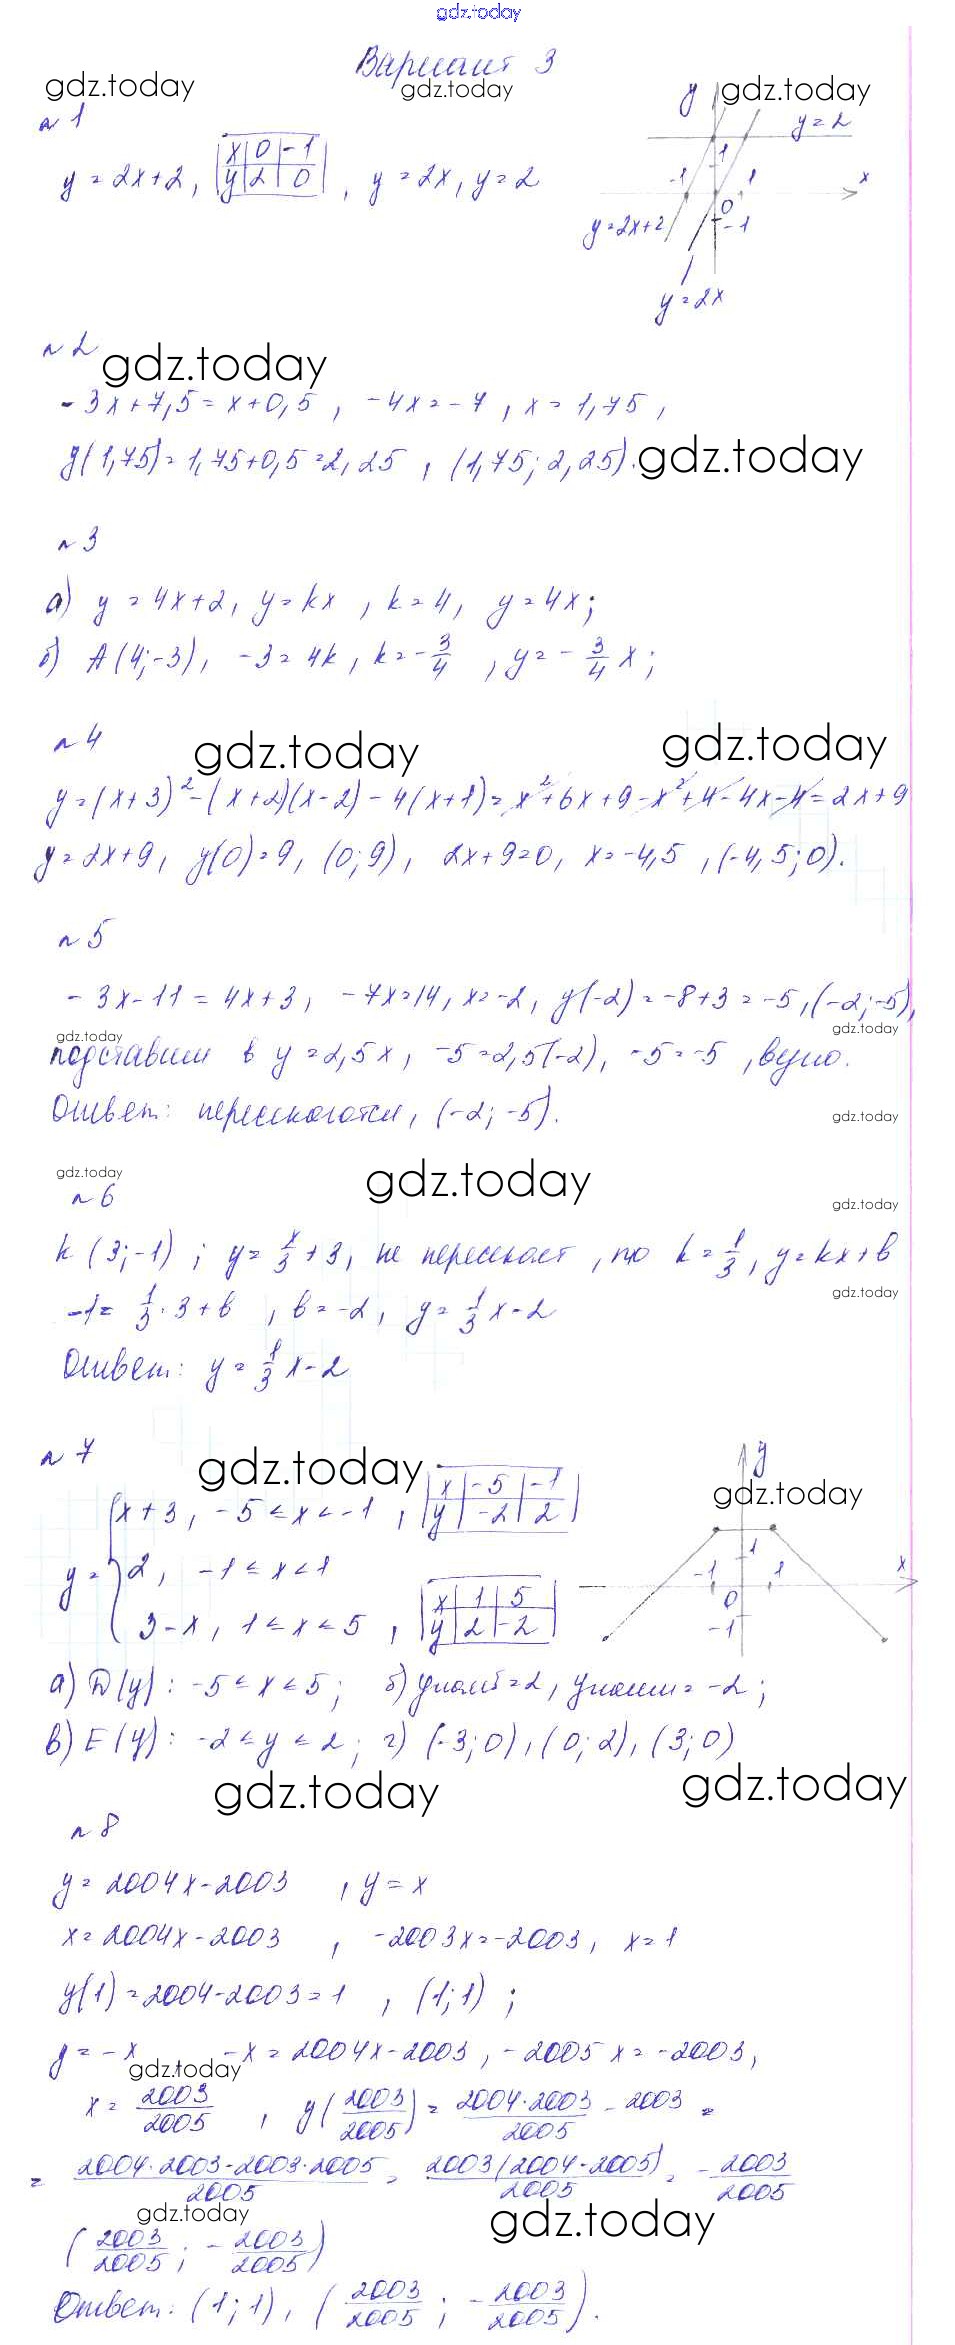 gdz.today
Вариант 3
gdz.today gdz.today gdz.today
n 1
y = 2x+2, x 0 -1 , y = 2x, y = 2
y 2 0
y
y = 2
1
-1 1 x
0
-1
y = 2x+2
y = 2x
n 2
gdz.today
-3x+7,5 = x+0,5 , -4x = -7 , x = 1,75 ,
y(1,75) = 1,75+0,5 = 2,25 , (1,75; 2,25). gdz.today
n 3
а) y = 4x+2, y = kx , k = 4, y = 4x;
б) A(4;-3), -3 = 4k, k = -3/4 , y = -3/4 x;
n 4
gdz.today gdz.today
y = (x+3)²-(x+2)(x-2)-4(x+1) = x²+6x+9-x²+4-4x-4 = 2x+9
y = 2x+9, y(0) = 9, (0; 9), 2x+9=0, x = -4,5 , (-4,5; 0).
n 5
-3x-11 = 4x+3, -7x = 14, x = -2, y(-2) = -8+3 = -5, (-2; -5),
gdz.today gdz.today
подставим в y = 2,5x, -5 = 2,5(-2), -5 = -5 , верно.
Ответ: пересекаются, (-2; -5).
gdz.today
gdz.today gdz.today
n 6
gdz.today
k (3; -1) ; y = x/3 + 3, не пересекает , то k = 1/3, y = kx+b
gdz.today
-1 = 1/3 · 3 + b , b = -2, y = 1/3 x-2
Ответ: y = 1/3 x-2
n 7
gdz.today
gdz.today
y = { x+3, -5 ≤ x ≤ -1 , x -5 -1
y -2 2
2, -1 ≤ x ≤ 1
3-x, 1 ≤ x ≤ 5 , x 1 5
y 2 -2
y
1
-1 1 x
0
-1
а) D(y): -5 ≤ x ≤ 5; б) yнаиб = 2, yнаим = -2;
в) E(y): -2 ≤ y ≤ 2; г) (-3; 0), (0; 2), (3; 0)
gdz.today gdz.today
n 8
y = 2004x-2003 , y = x
x = 2004x-2003 , -2003x = -2003, x = 1
y(1) = 2004-2003 = 1 , (1; 1) ;
y = -x -x = 2004x-2003, -2005x = -2003,
gdz.today
x = 2003/2005 , y(2003/2005) = 2004·2003/2005 - 2003 =
= 2004·2003-2003·2005/2005 = 2003(2004-2005)/2005 = -2003/2005
gdz.today gdz.today
(2003/2005; -2003/2005)
Ответ: (1; 1), (2003/2005; -2003/2005).